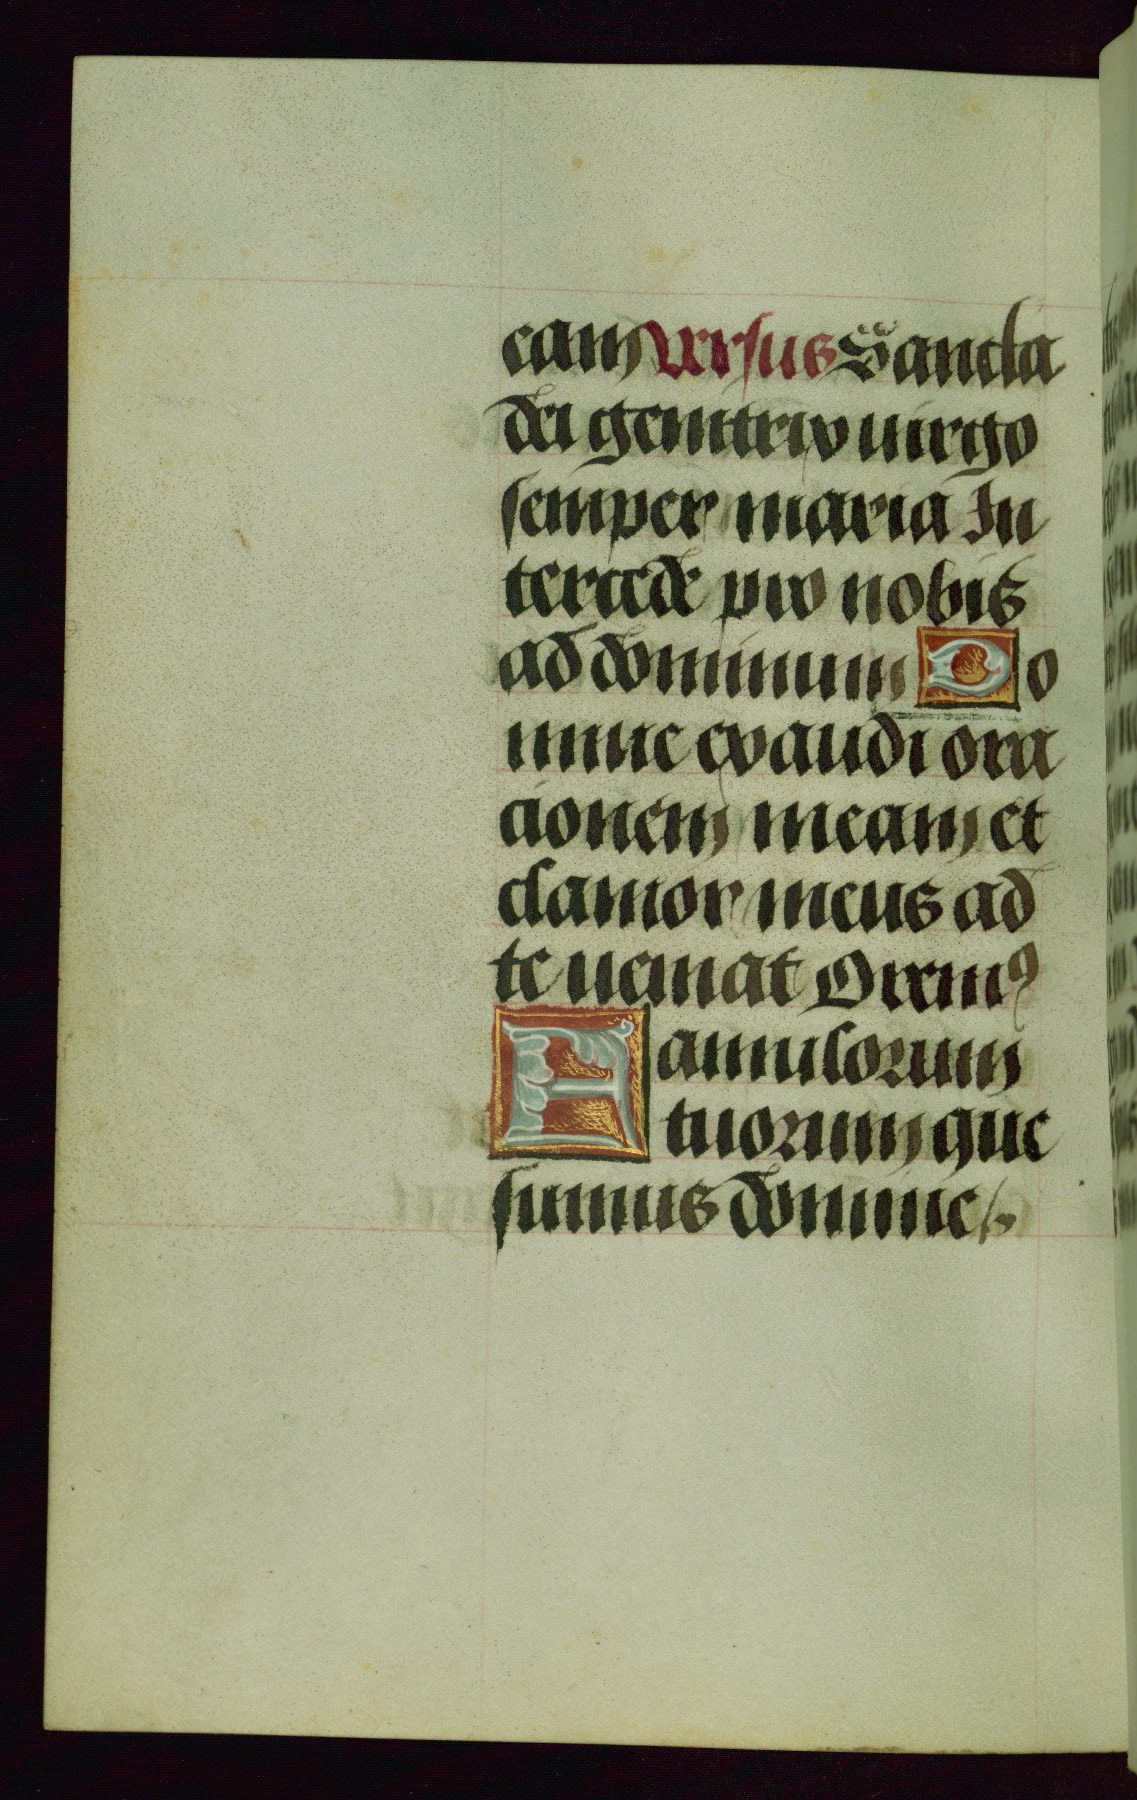 eam Versus Sancta
dei genitrix uirgo
semper maria In
tercede pro nobis
ad dominum Do
mine exaudi ora
cionem meam et
clamor meus ad
te ueniat Oremꝰ
Famulorum
tuorum que
sumus domine